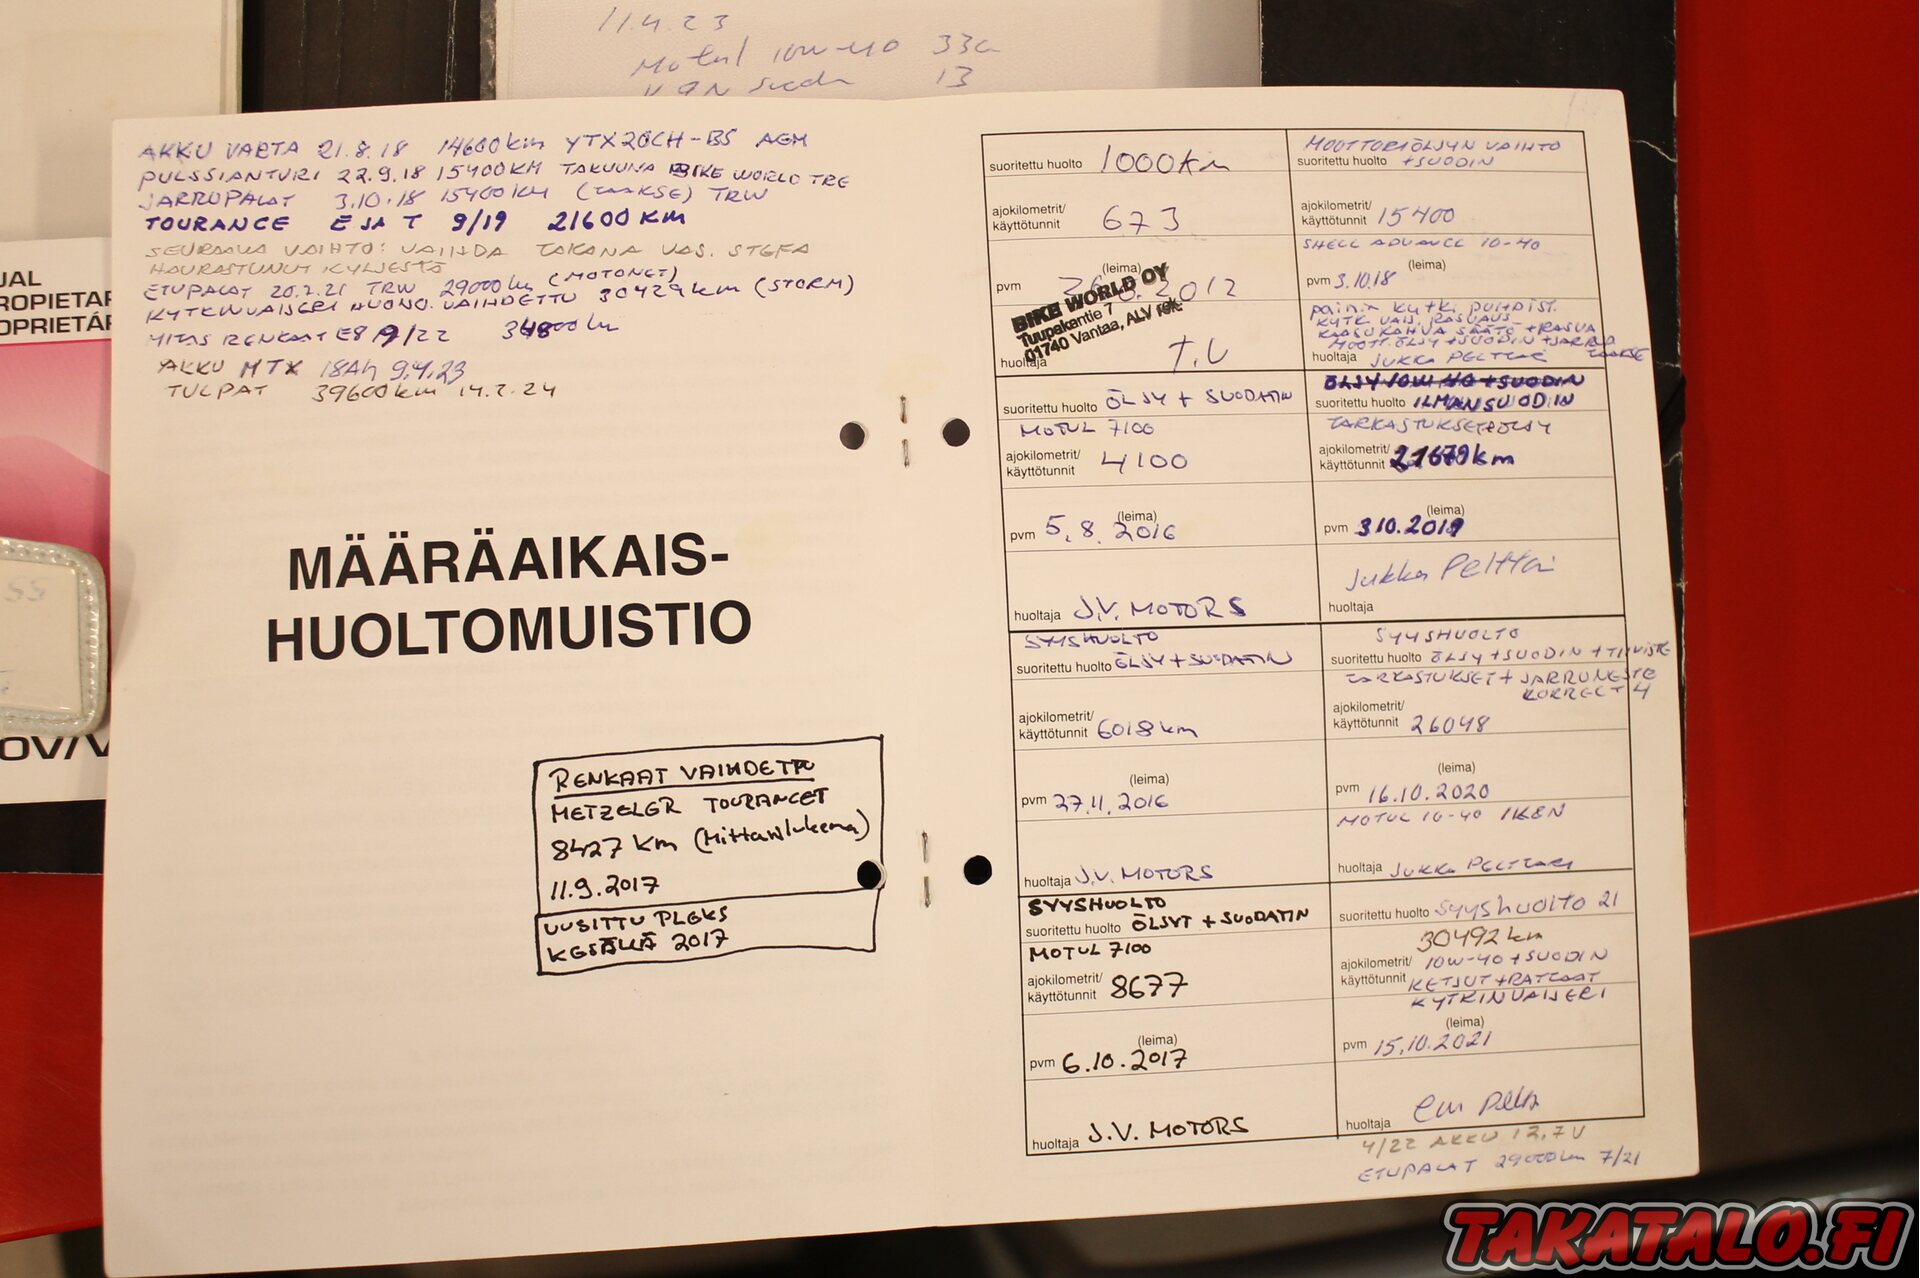 11.4.23
Motul 10W-40 33€
13
JAL
ROPIETAR
OPRIETÁR
OV/V
AKKU VARTA 21.8.18 14600km YTX20CH-BS AGM
PULSSIANTURI 22.9.18 15400KM TAKUUNA BIKE WORLD TRE
JARRUPALAT 3.10.18 15400KM (TAAKSE) TRW
TOURANCE E JA T 9/19 21600KM
SEURAAVA VAIHTO: VAIHDA TAKANA VAS. STEFA
HAURASTUNUT KYLJESTÄ
ETUPALAT 20.2.21 TRW 29000km (MOTONET)
KYTKINVAIJERI HUONO. VAIHDETTU 30429km (STORM)
MITAS RENKAAT E8 9/22
AKKU MTX 18Ah 9.4.23
TULPAT 39600km 14.2.24
MÄÄRÄAIKAIS-
HUOLTOMUISTIO
RENKAAT VAIHDETTU
METZELER TOURANCET
8427 km (Mittarilukema)
11.9.2017
UUSITTU PLEKS
KESÄLLÄ 2017
suoritettu huolto 1000Km
ajokilometrit/
käyttötunnit 673
(leima)
pvm 2012
BIKE WORLD OY
Tuupakantie 7
01740 Vantaa, ALV rek.
huoltaja T.V
suoritettu huolto ÖLJY + SUODATIN
MOTUL 7100
ajokilometrit/
käyttötunnit 4100
(leima)
pvm 5.8.2016
huoltaja J.V. MOTORS
SYYSHUOLTO
suoritettu huolto ÖLJY + SUODATIN
ajokilometrit/
käyttötunnit 6018km
(leima)
pvm 27.11.2016
huoltaja J.V. MOTORS
SYYSHUOLTO
suoritettu huolto ÖLJYT + SUODATIN
MOTUL 7100
ajokilometrit/
käyttötunnit 8677
(leima)
pvm 6.10.2017
huoltaja J.V. MOTORS
MOOTTORIÖLJYN VAIHTO
suoritettu huolto +SUODIN
ajokilometrit/
käyttötunnit 15400
SHELL ADVANCE 10-40
(leima)
pvm 3.10.18
KYTK. VAIJ. RASVAUS
KAASUKAHVA SÄÄTÖ + RASVA
MOOTT.ÖLJY + SUODIN + JARRUP
TAAKSE
huoltaja JUKKA PELTTARI
ÖLJY 10W-40 + SUODIN
suoritettu huolto ILMANSUODIN
TARKASTUKSET+ÖLJY
ajokilometrit/
käyttötunnit 21679km
(leima)
pvm 3.10.2019
Jukka Pelttari
huoltaja
SYYSHUOLTO
suoritettu huolto ÖLJY + SUODIN + TIIVISTE
TARKASTUKSET + JARRUNESTE
KORRECT 4
ajokilometrit/
käyttötunnit 26048
(leima)
pvm 16.10.2020
MOTUL 10-40
huoltaja JUKKA PELTTARI
suoritettu huolto SYYSHUOLTO 21
30492 km
ajokilometrit/ 10W-40 + SUODIN
käyttötunnit KETJUT + RATKAAT
KYTKINVAIJERI
(leima)
pvm 15.10.2021
huoltaja
4/22 AKKU 12,7V
ETUPALAT 29000km 7/21
TAKATALO.FI